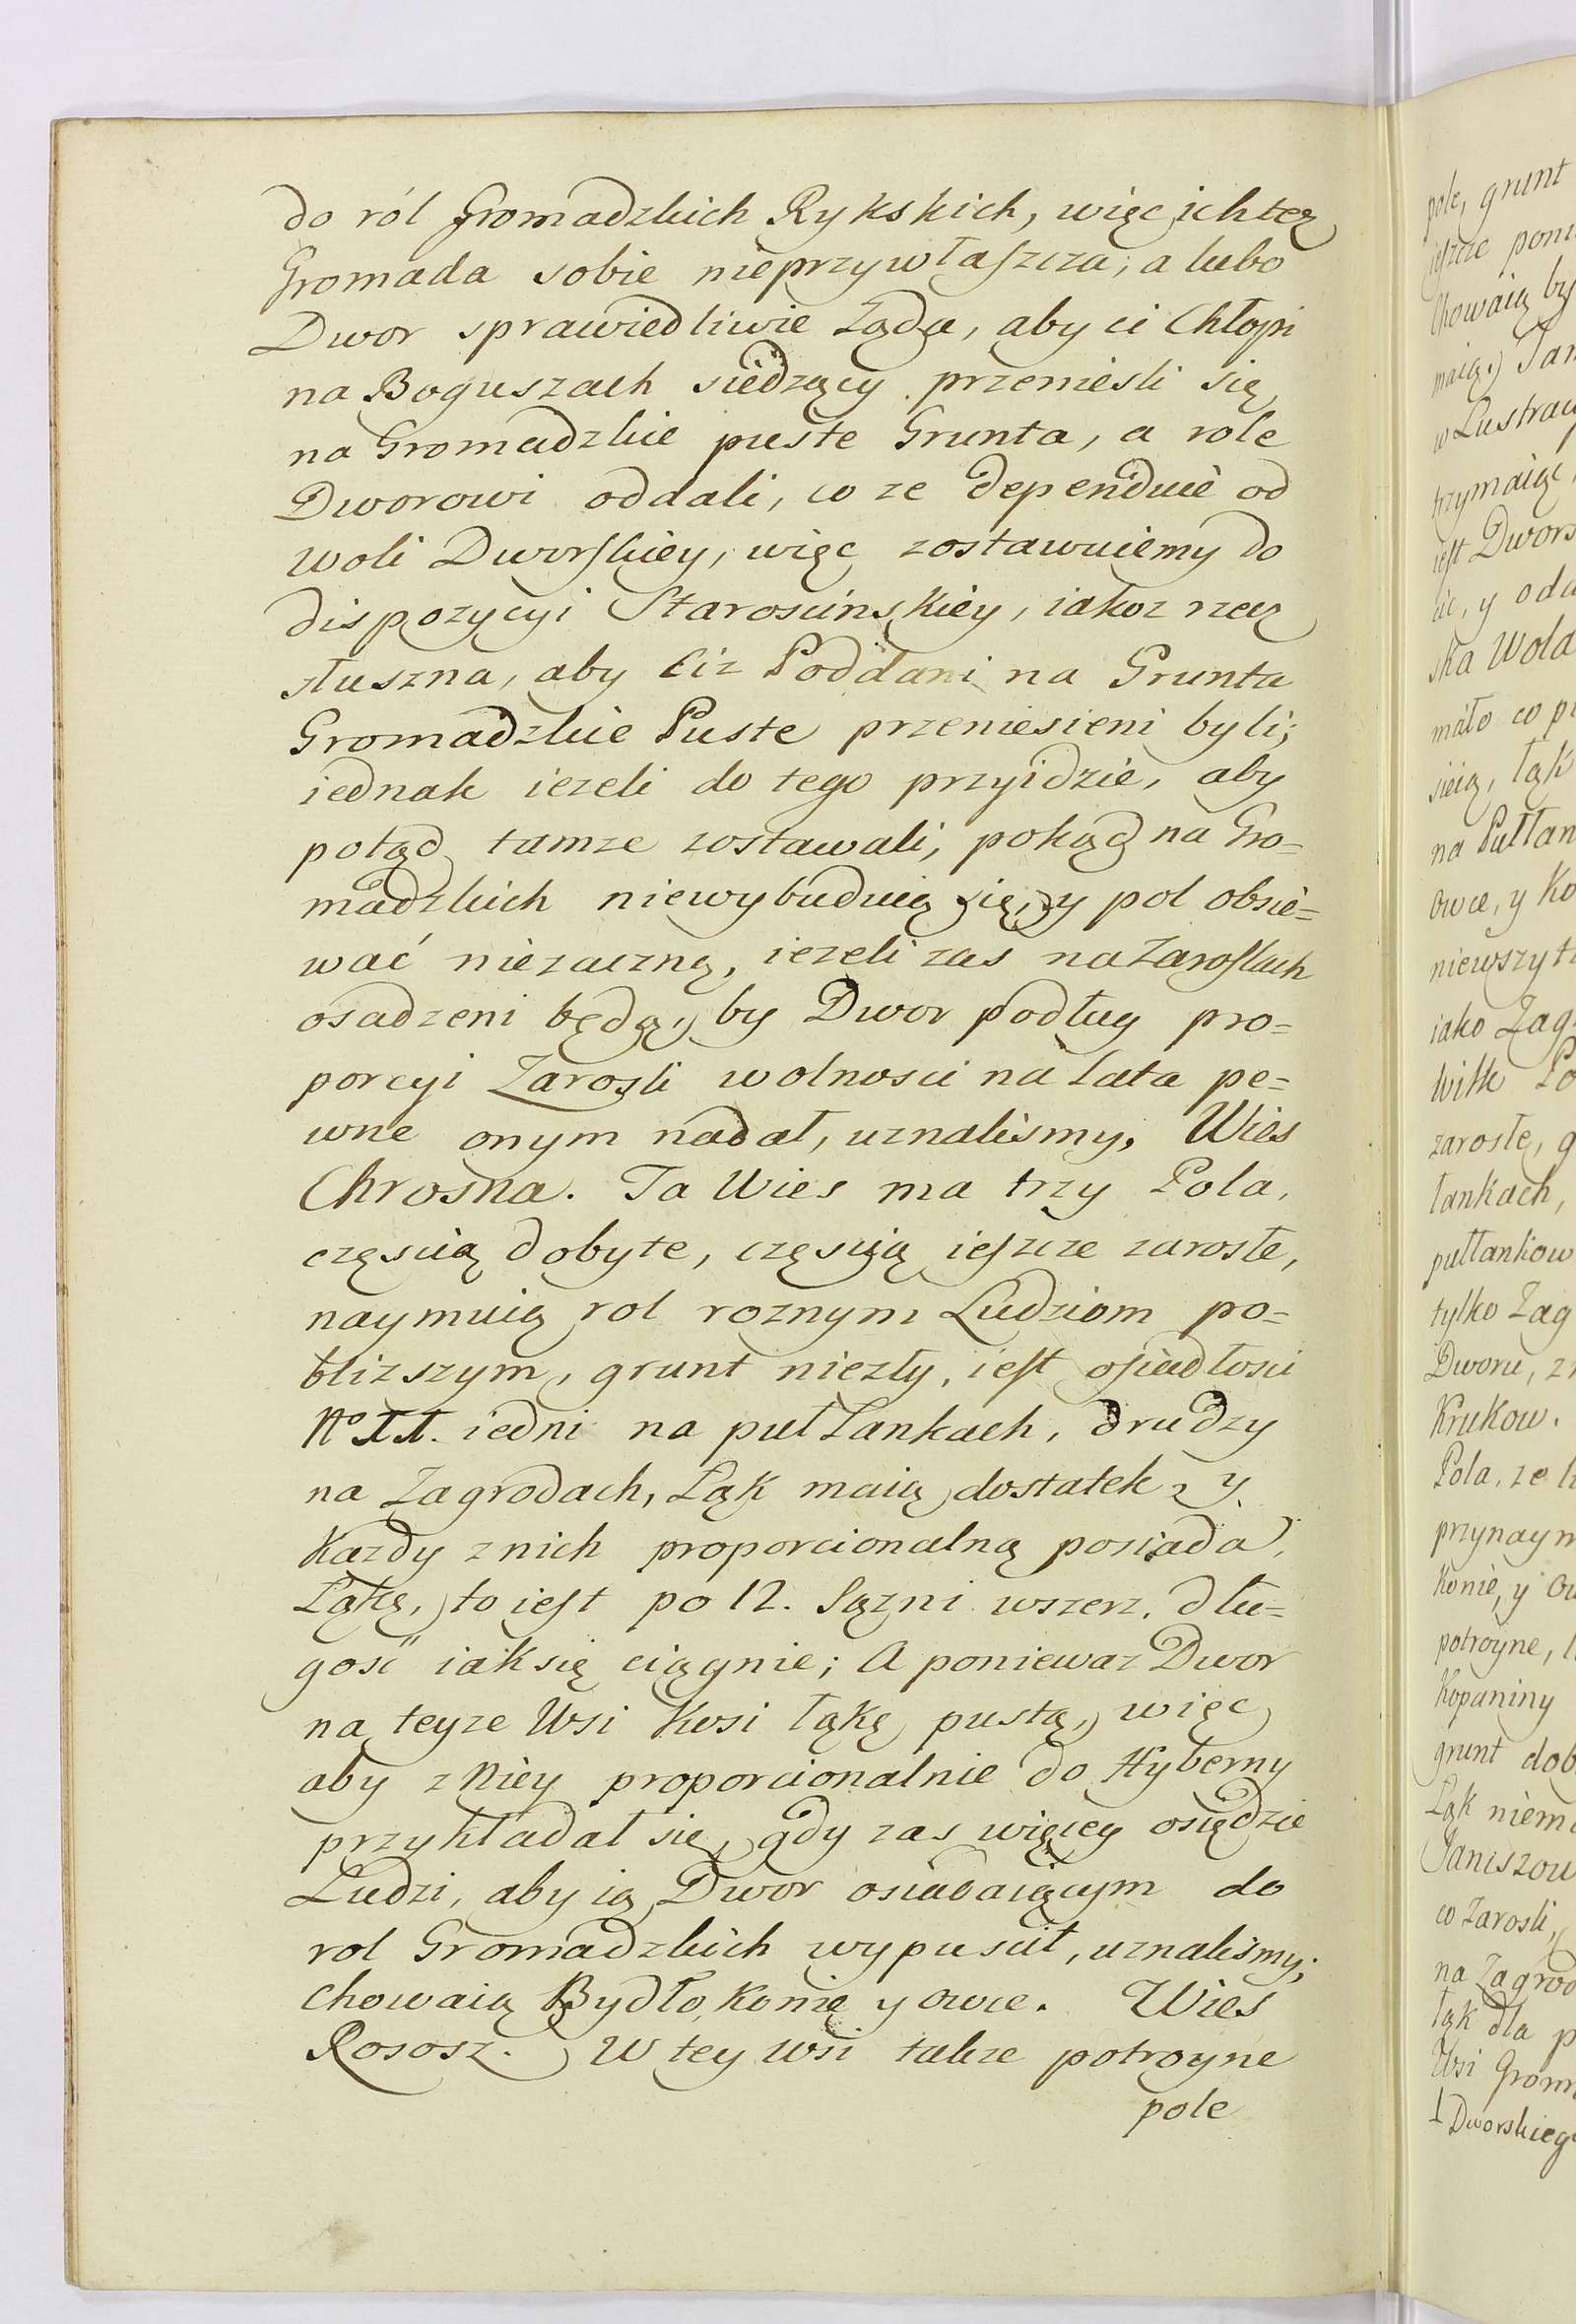 do ról Gromadzkich Rykskich, więc ich tez
Gromada sobie nieprzywłaszcza; a lubo
Dwor sprawiedliwie Ząda, aby ci Chłopi
na Boguszach siedzący przeniesli się
na Gromadzkie puste Grunta, a role
Dworowi oddali, co ze dependuie od
woli Dworskiey, więc zostawuiemy do
dispozycyi Staroscinskiey, iakoz rzecz
słuszna, aby Ciz Poddani na Grunta
Gromadzkie Puste przeniesieni byli;
iednak iezeli do tego przyidzie, aby
potąd tamze zostawali, pokąd na Gro=
madzkich niewybuduią się, y pol obsie=
wać niezaczną, iezeli zas na Zaroslach
osadzeni będą, by Dwor podług pro=
porcyi Zarosli wolnosci na Lata pe=
wne onym nadał, uznalismy, Wies
Chrosna. Ta Wies ma trzy Pola,
częscią dobyte, częscią ieszcze zarosłe,
naymuią rol roznym Ludziom po=
blizszym, grunt niezły, iest osiadłosci
No 11. iedni na puł Lankach, drudzy
na Zagrodach, Łąk maią dostatek, y
Kazdy z nich proporcionalną posiada
Łąkę, to iest po 12. Sązni wszerz, dłu=
gosć iak się ciągnie; A poniewaz Dwor
na teyze Wsi Kosi łąkę pustą, więc
aby z Niey proporcionalnie do Hyberny
przykładał się, gdy zas więcey osiędzie
Ludzi, aby ią Dwor osiadaiącym do
rol Gromadzkich wypuscił, uznalismy;
chowaią Bydło, Konie y owce. Wies
Rososz. W tey wsi takze potroyne
pole
pole, grunt
ieszcze
Chowaią by
maią.
w Lustracy
trzymaiąc,
iest Dwors
y oda
ska Wola
mało co p
siеią, łąk
na Pułłan
owce, y Ko
niewszyt
iako Zag
zarosłe, g
łankach,
pułłankow
tylko Zag
Dworu, z
Krukow.
Pola, ze
przynaym
Konie, y Ow
potroyne,
Kopaniny
grunt dob
Łąk niema
Janiszow
co Zarosli,
na Zagrod
łąk dla p
Wsi Grom
1 Dworskieg